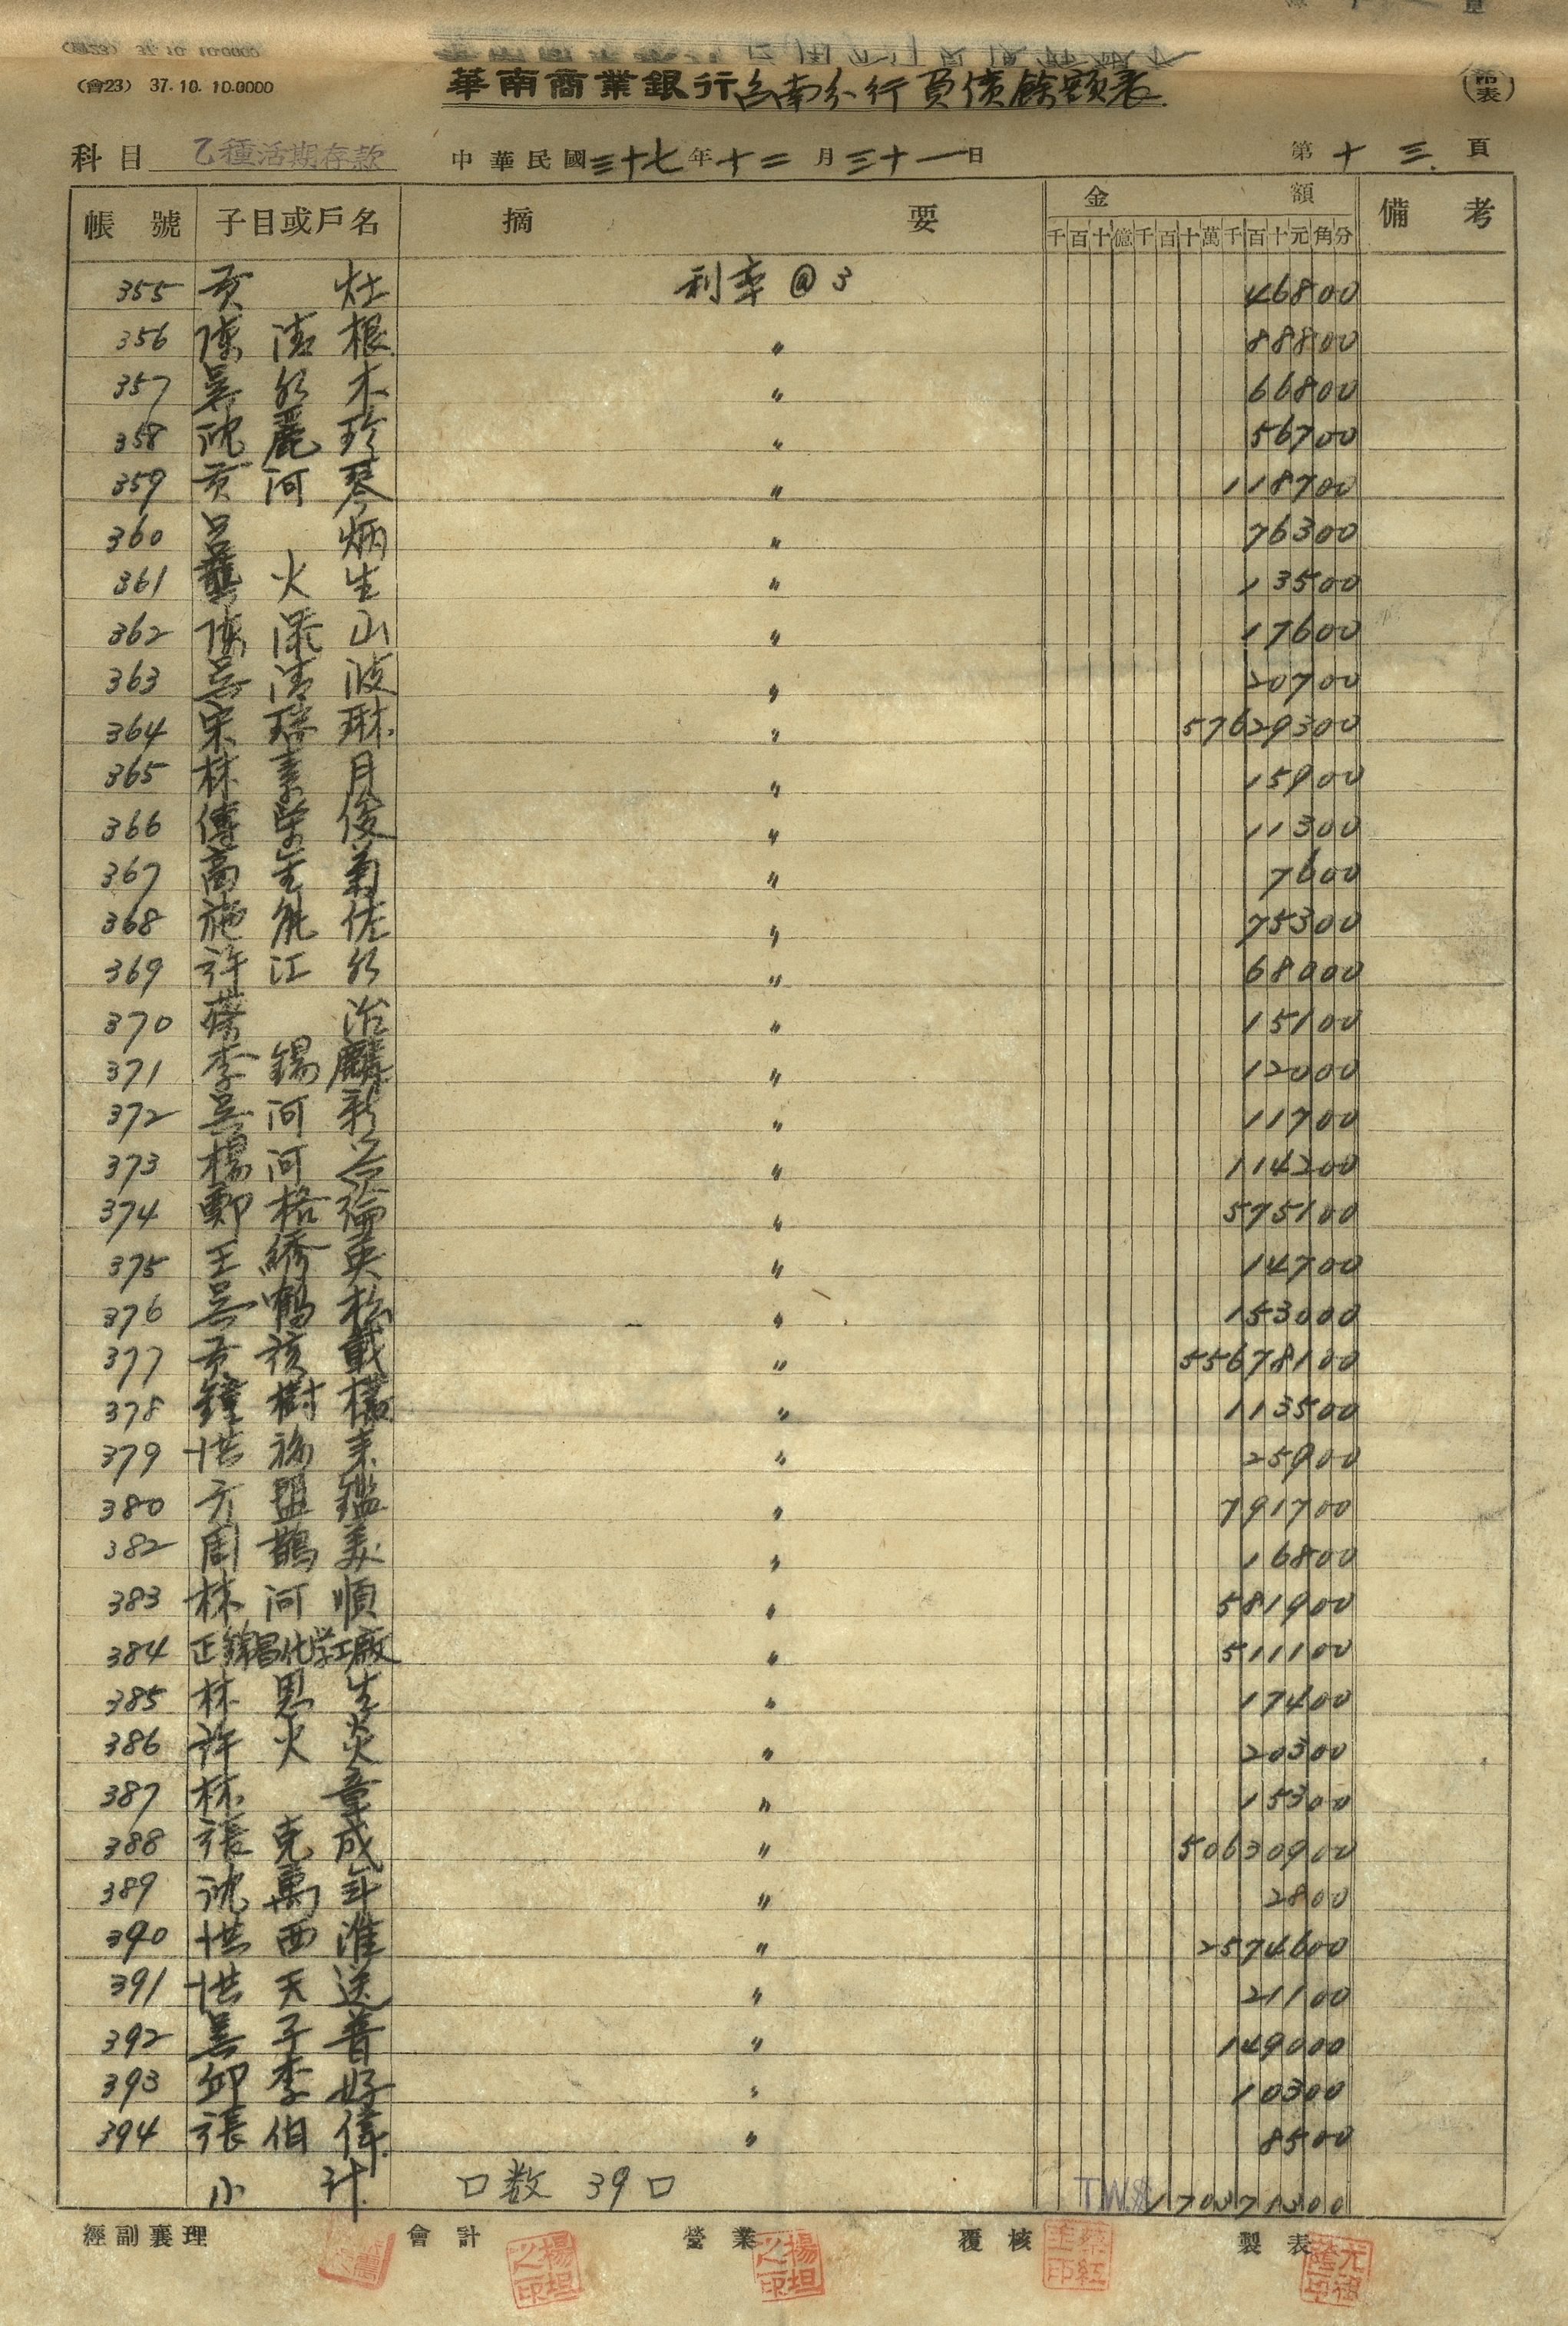 (會23) 37.10. 10.0000
華南商業銀行台南分行負債餘額表
科目 乙種活期存款 中華民國三十七年十二月三十一日 第十三頁
帳號 子目或戶名 摘要 金額 備考
千百十億千百十萬千百十元角分
355 黃灶 利率@3 46800
356 陳清根 〃 88800
357 吳水木 〃 66800
358 沈麗珍 〃 56700
359 黃河琴 〃 118700
360 呂炳 〃 76300
361 龔火生 〃 13500
362 陳添山 〃 17600
363 吳清波 〃 20700
364 宋瑞琳 〃 57629300
365 林素月 〃 15900
366 傅榮俊 〃 11300
367 高金菊 〃 7600
368 施能佐 〃 75300
369 許江水 〃 68000
370 蔡治 〃 15100
371 李錫麟 〃 12000
372 吳河新 〃 11700
373 楊河 〃 114200
374 鄭格倫 〃 575100
375 王綉英 〃 14700
376 吳鶴松 〃 153000
377 黃孩戴 〃 55678100
378 鐘樹 〃 113500
379 洪福来 〃 25900
380 方盟鑑 〃 791700
382 周鵲美 〃 16800
383 林河順 〃 581900
384 正錦昌化学工廠 〃 511100
385 林恩生 〃 17400
386 許火炎 〃 20300
387 林章 〃 15300
388 張克成 〃 50630900
389 沈萬年 〃 2800
390 洪西淮 〃 2574600
391 洪天送 〃 21100
392 吳子普 〃 149000
393 邱李好 〃 10300
394 張伯偉 〃 8500
小計 口数 39口 TW$
經副襄理 會計 營業 覆核 製表
楊坦之印 楊坦之印